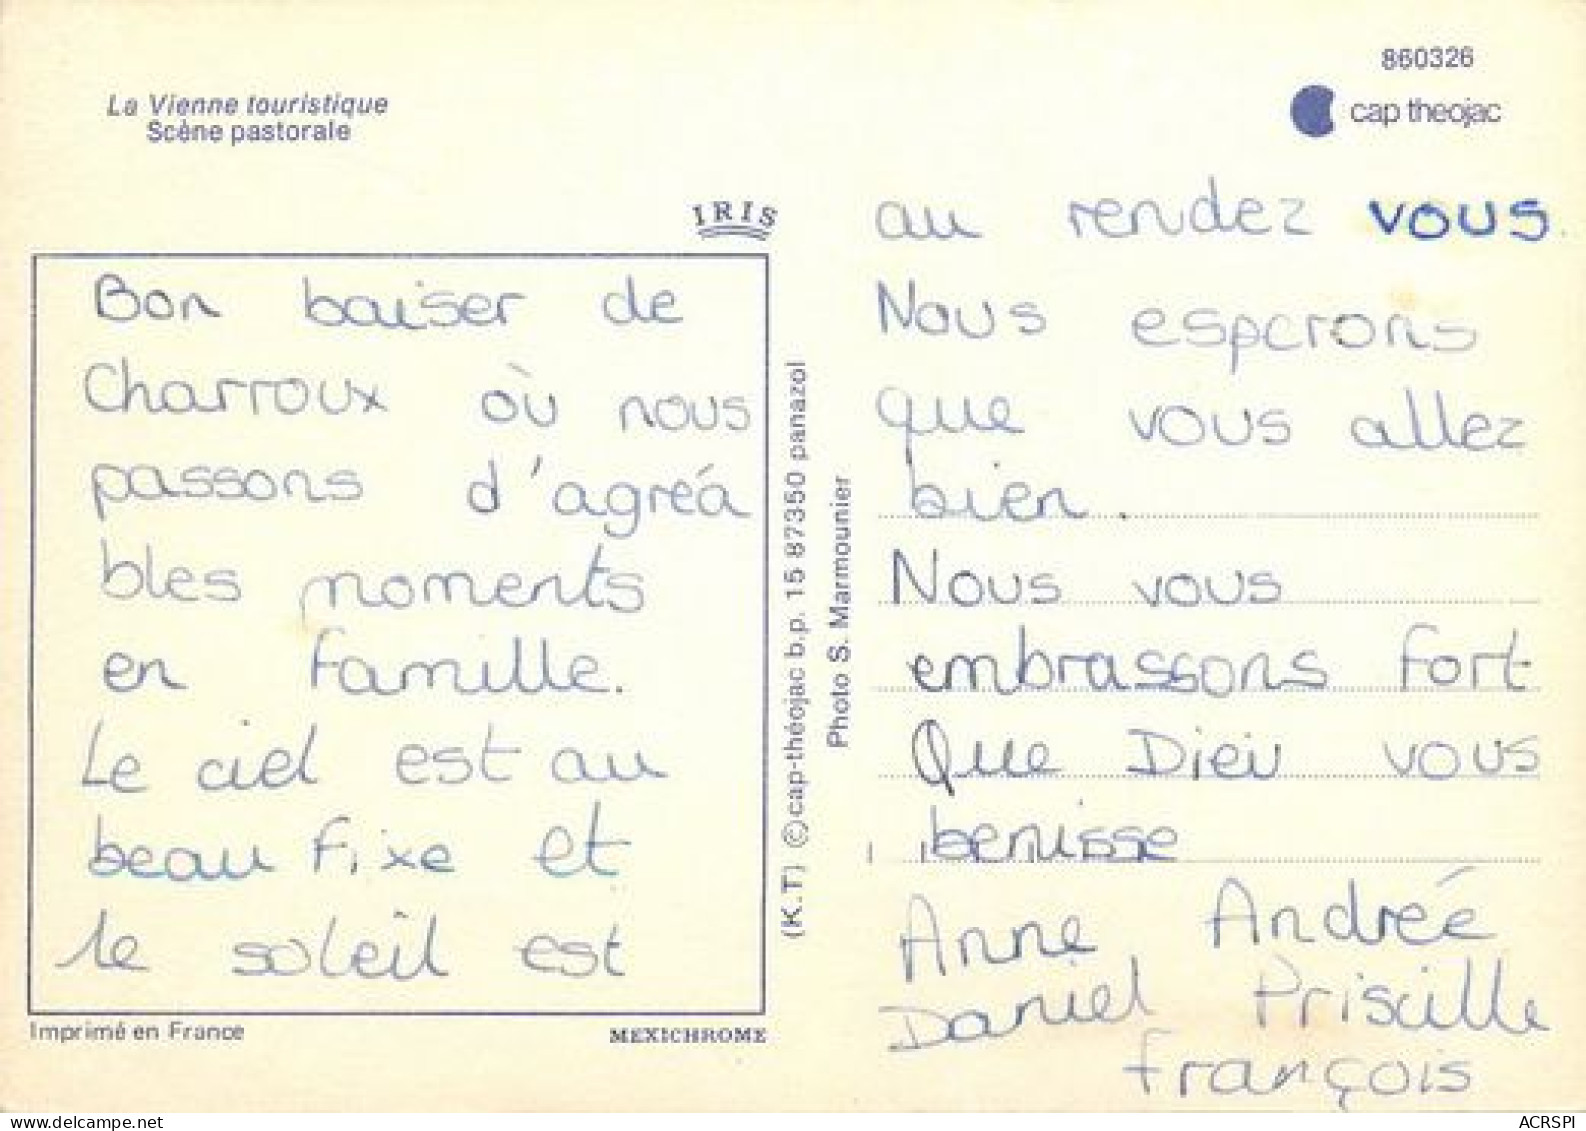 La Vienne touristique
Scène pastorale
860326
cap theojac
IRIS
Bon baiser de
Charroux où nous
passons d'agréa
bles moments
en famille.
Le ciel est au
beau fixe et
le soleil est
Imprimé en France
MEXICHROME
(K.T) © cap-théojac b.p. 15 87350 panazol
Photo S. Marmounier
au rendez vous.
Nous esperons
que vous allez
bien.
Nous vous
embrassons fort
Que Dieu vous
benisse
Anne Andrée
Daniel Priscille
François
ACRSPI